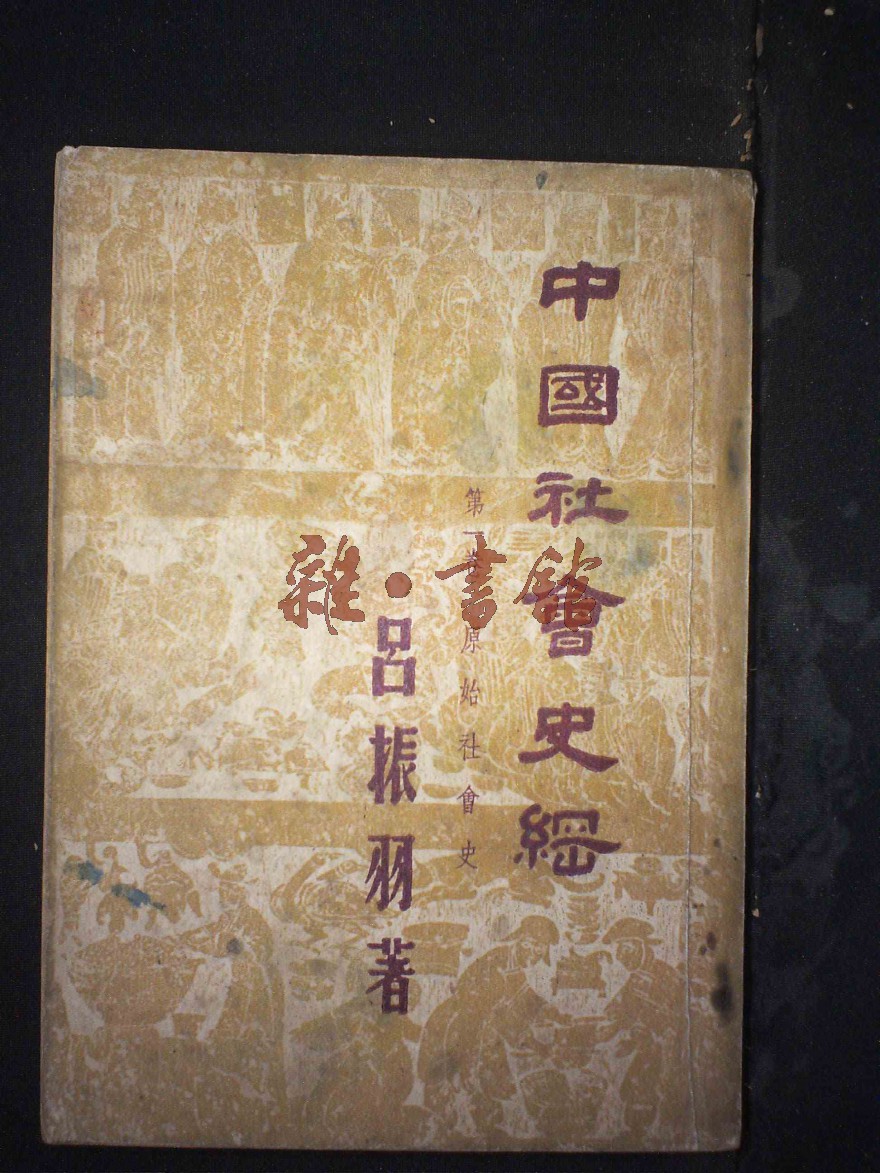 中國社會史綱
第一卷 原始社會史
呂振羽著
雜·書館